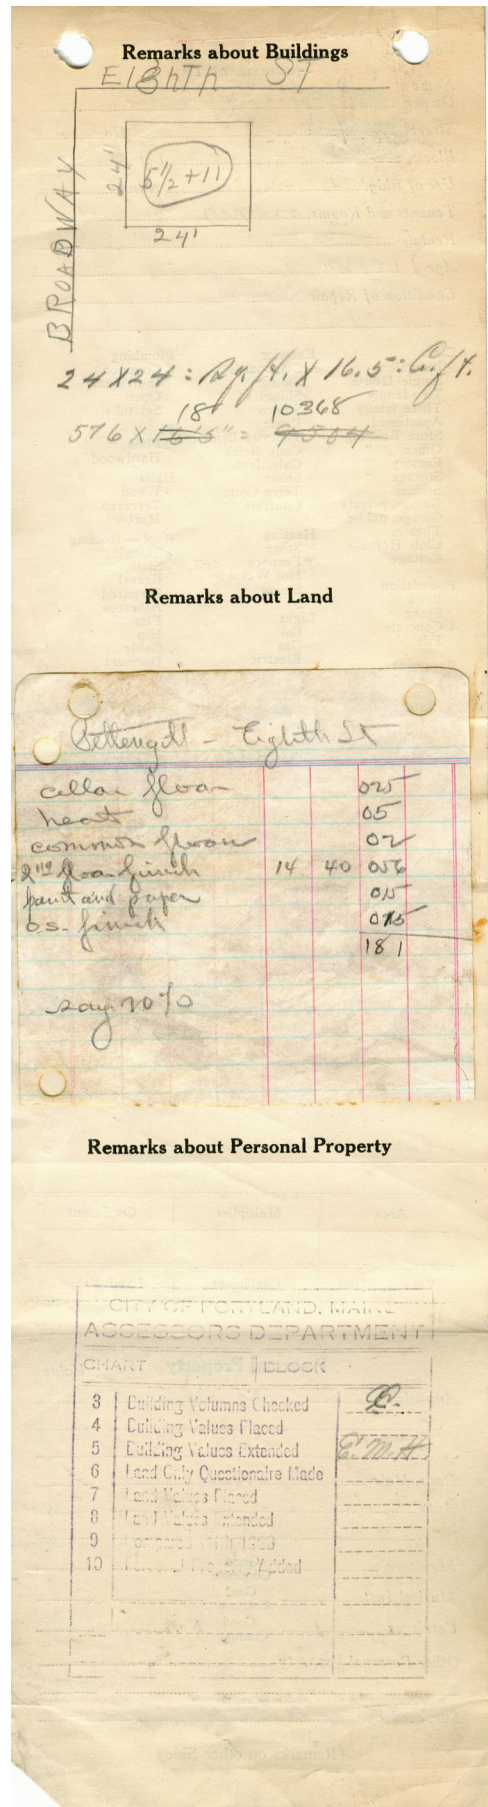 Remarks about Buildings
EIGHTH ST
BROADWAY
24'
5 1/2 + 11
24'
24 X 24 : Sq. ft. X 16.5 : Cu. ft.
18 10368
576 X 16'5" = 9504
Remarks about Land
Pettengill - Eighth St
cellar floor 025
heat 05
common floor 02
2nd floor finish 14 40 056
paint and paper 015
o.s. finish 015
181
say 20%
Remarks about Personal Property
CITY OF PORTLAND, MAINE
ASSESSORS DEPARTMENT
CHART BLOCK
3 Building Volumns Checked
4 Building Values Placed
5 Building Values Extended E.M.H.
6 Land Only Questionaire Made
7 Land Values Placed
8 Land Values Extended
9 Compared With 1923
10 Personal Property Added